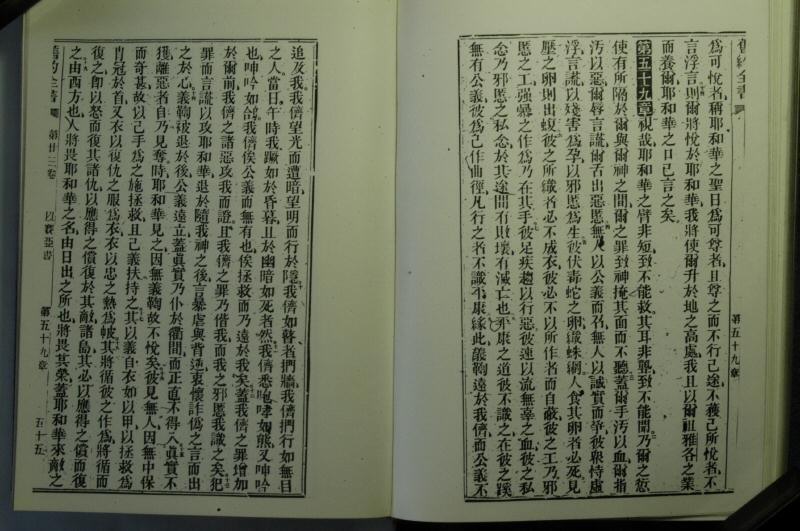 舊約全書
第五十九章
為可悅者稱耶和華之聖日為可尊者且尊之而不行己途不獲己所悅者不
言浮言則爾將悅於耶和華我將使爾升於地之高處我且以爾祖雅各之業
而養爾耶和華之口已言之矣
第五十九章視哉耶和華之臂非短致不能救其耳非聾致不能聞乃爾之愆
使有所隔於爾與爾神之間爾之罪致神掩其面而不聽蓋爾手汚以血爾指
汚以惡爾唇言謊爾舌出惡慝無人以公義而召無人以誠實而爭彼眾恃虛
浮言謊以殘害為孕以邪慝為生彼伏毒蛇之卵織蛛網人食其卵者必死見
壓之卵則出蝮彼之所織者必不成衣彼必不以所作者而自蔽彼之工乃邪
慝之工強暴之作為乃在其手彼足疾趨以行惡彼速以流無辜之血彼之私
念乃邪慝之私念於其途間有敗壞有滅亡也平康之道彼不識之在彼之蹊
無有公義彼為己作曲徑凡行之者不識平康緣此義鞫遠於我儕而公義不
追及我我儕望光而遭暗望明而行於隱我儕如瞽者捫牆我儕捫行如無目
之人當日午時我蹶如於昏暮且於幽暗如死者然我儕悉咆哮如熊又呻吟
也呻吟如鴿我儕俟公義而無有也俟拯救而乃遠於我矣蓋我儕之罪增加
於爾前我儕之諸惡攻我而證且我儕之罪乃偕我而我之邪慝我識之矣犯
罪而言謊以攻耶和華退於隨我神之後言暴虐與背逆衷懷詐偽之言而出
之於心義鞫被退於後公義遠立蓋眞實乃仆於衢間而正直不得入眞實不
獲離惡者自乃見奪時耶和華見之因無義鞫故不悅矣彼見無人因無中保
而奇甚故以己手為之施拯救且己義扶持之其以義自衣如以甲以拯救為
冑冠於首又衣以復仇之服為衣衣以忠之熱為帔其將循彼之作為將循而
復之卽以怒而復其諸仇以應得之償復於其敵諸島其必以應得之償而復
之由西方也人將畏耶和華之名由日出之所也將畏其榮蓋耶和華來敵之
舊約全書
第廿三卷
以賽亞書
第五十九章
五十五